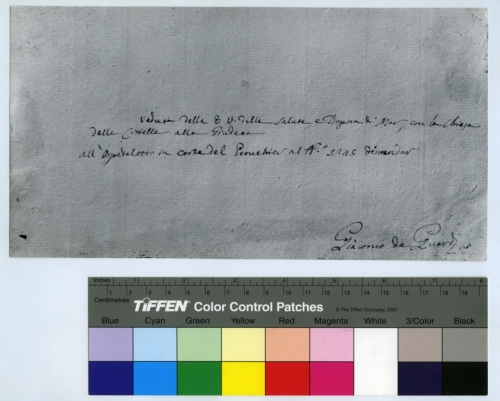 Veduta della B. V. della Salute e Dogana di Mar, con la Chiesa
delle Zitelle alla Giudeca
all'Ospedaletto in corte del Peruchier al N.o 5245 dimandar
Giacomo de Guardi
Inches 1 2 3 4 5 6 7 8
Centimetres 1 2 3 4 5 6 7 8 9 10 11 12 13 14 15 16 17 18 19
TIFFEN® Color Control Patches
© The Tiffen Company, 2007
Blue Cyan Green Yellow Red Magenta White 3/Color Black